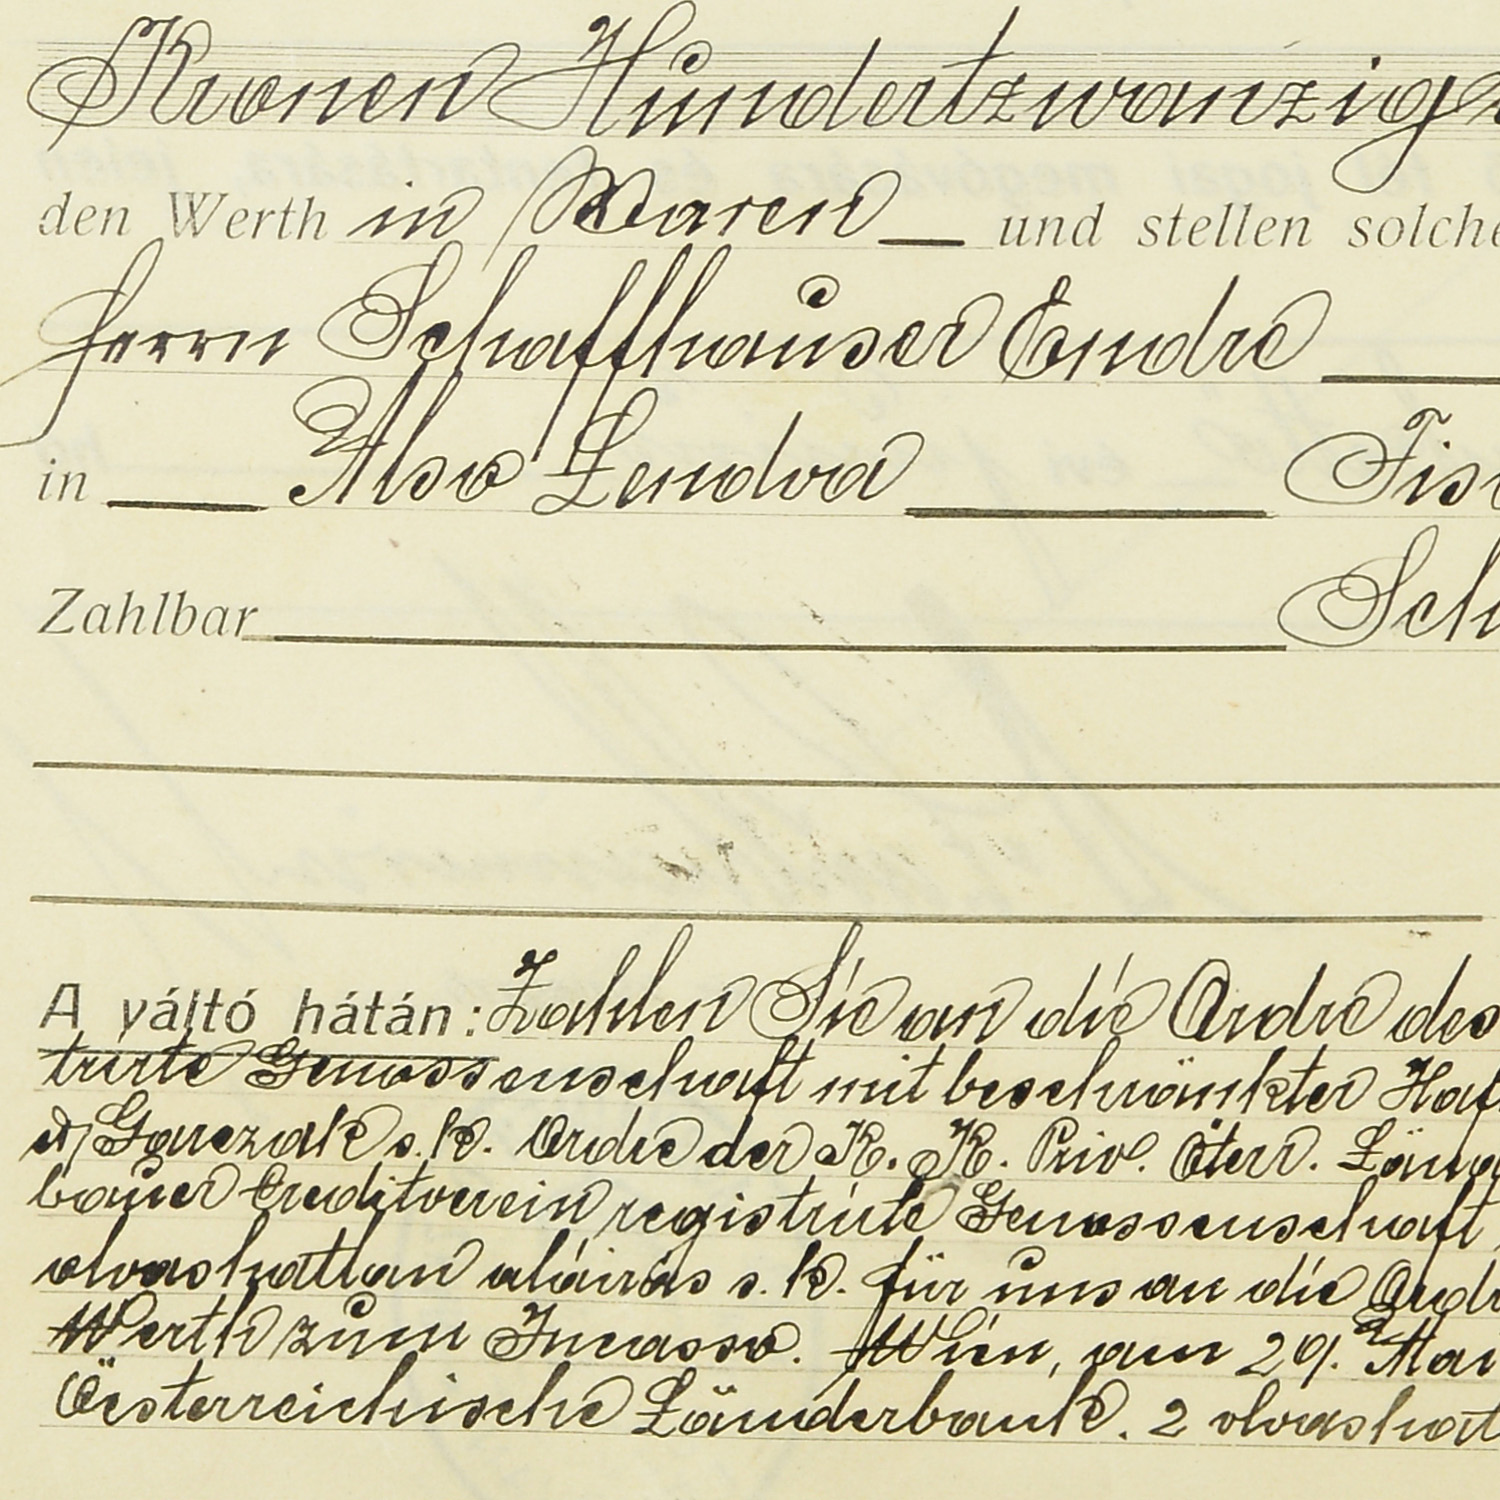 Kronen Hundertzwanzig
den Werth in Waren — und stellen solche
Herrn Schaffhauser Endre
in Alsó Lendva Fis
Zahlbar Sch
A váltó hátán: Zahlen Sie an die Ordre des
trirte Genossenschaft mit beschränkter Haf
s. k. Ordre der K. K. Priv. Öterr. Län
bauer Creditverein registrirte Genossenschaft
olvashatlan aláirás s. k. für uns an die Ordr
Werth zum Incasso. Wien, am 29. Mai
Österreichische Länderbank. 2 olvashat